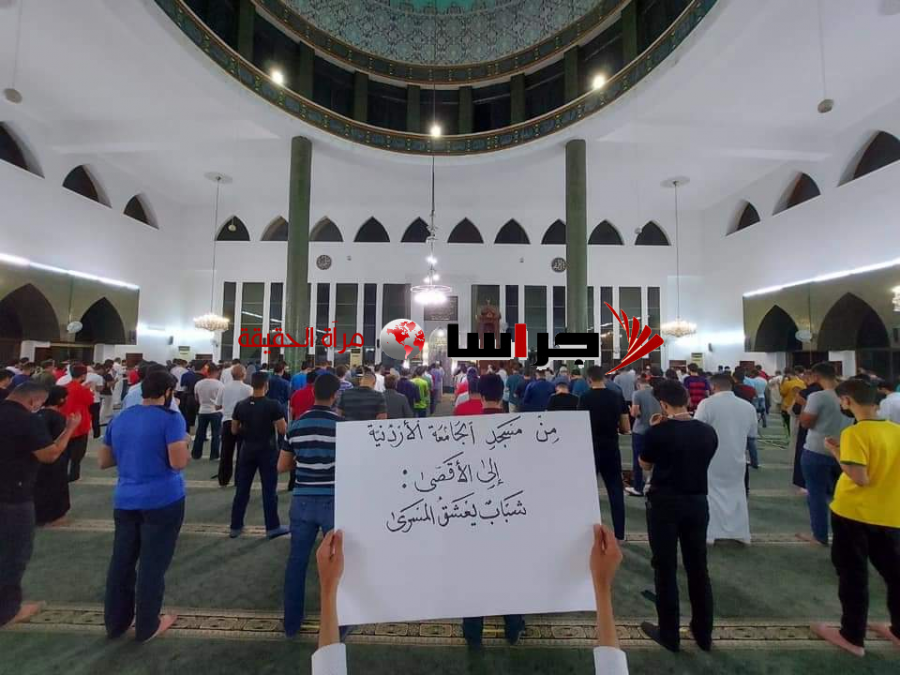 جراسا
مرآة الحقيقة
مِنْ مَسْجِدِ الْجَامِعَةِ الْأُرْدُنِيَّةِ
إِلَى الْأَقْصَى :
شَبَابٌ يَعْشَقُ الْمَسْرَى